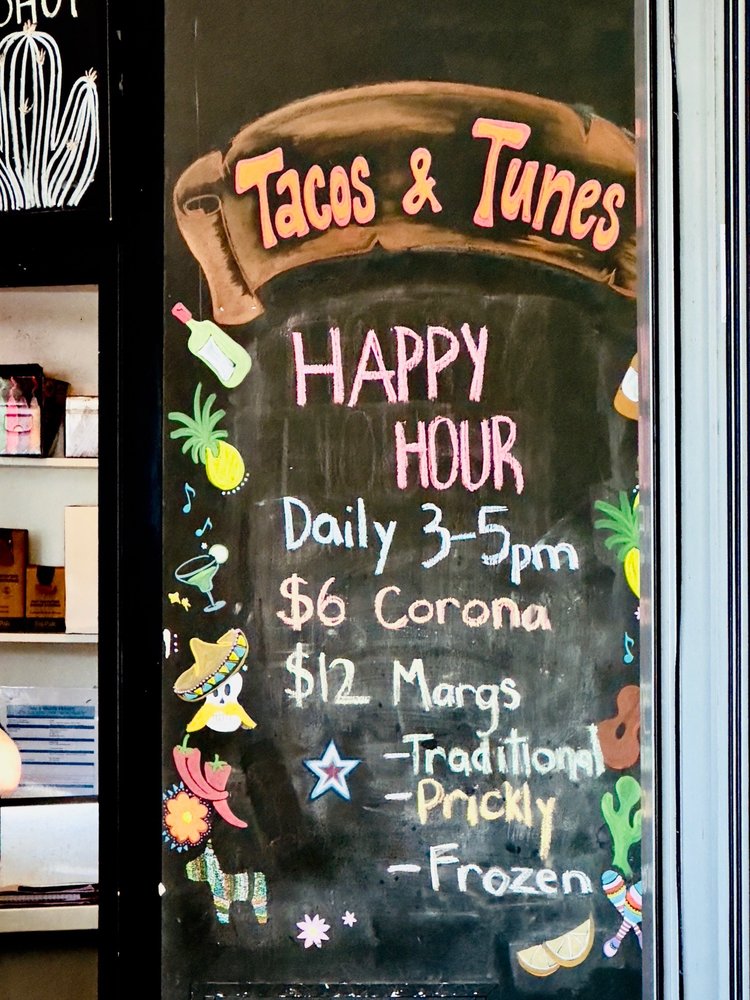 Tacos & Tunes
HAPPY
HOUR
Daily 3-5pm
$6 Corona
$12 Margs
-Traditional
-Prickly
-Frozen